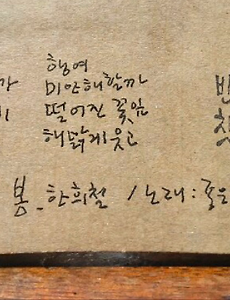 행여
미안해할까
떨어진 꽃잎
해맑게 웃고
봄_한희철 / 노래:좋은